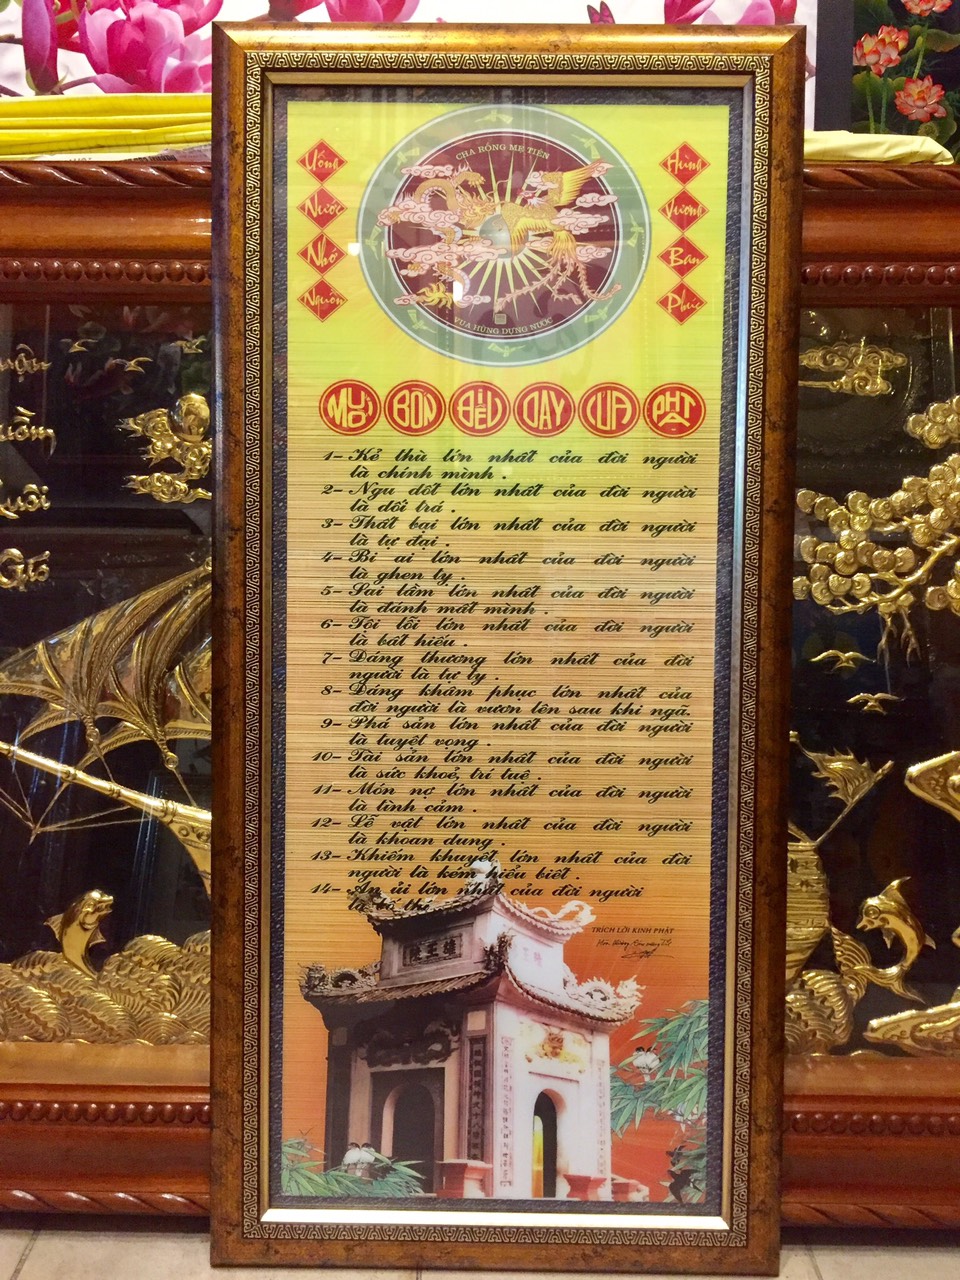 CHA RỒNG MẸ TIÊN
VUA HÙNG DỰNG NƯỚC
Uống
Nước
Nhớ
Nguồn
Hùng
Vương
Ban
Phúc
MƯỜI BỐN ĐIỀU DẠY CỦA PHẬT
1- Kẻ thù lớn nhất của đời người
là chính mình .
2- Ngu dốt lớn nhất của đời người
là dối trá .
3- Thất bại lớn nhất của đời người
là tự đại .
4- Bi ai lớn nhất của đời người
là ghen tỵ .
5- Sai lầm lớn nhất của đời người
là đánh mất mình .
6- Tội lỗi lớn nhất của đời người
là bất hiếu .
7- Đáng thương lớn nhất của đời
người là tự ty .
8- Đáng khâm phục lớn nhất của
đời người là vươn lên sau khi ngã.
9- Phá sản lớn nhất của đời người
là tuyệt vọng .
10- Tài sản lớn nhất của đời người
là sức khoẻ, trí tuệ .
11- Món nợ lớn nhất của đời người
là tình cảm .
12- Lễ vật lớn nhất của đời người
là khoan dung .
13- Khiếm khuyết lớn nhất của đời
người là kém hiểu biết .
14- An ủi lớn nhất của đời người
là bố thí
TRÍCH LỜI KINH PHẬT